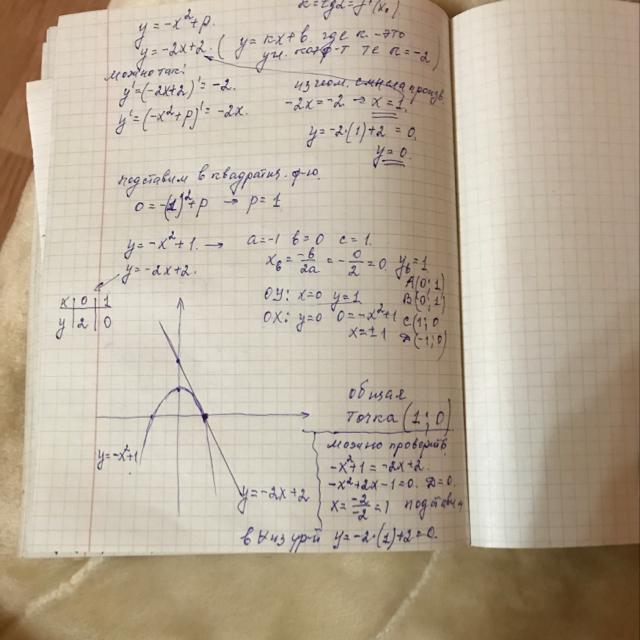 k=tg2=f'(x₀)
y=-x²+p.
y=-2x+2. (y=kx+b, где к-это
уг. коэф-т те к=-2)
можно так:
y'=(-2x+2)'=-2.
из геом. смысла произв.
y'=(-x²+p)'=-2x.
-2x=-2 → x=1.
y=-2·(1)+2=0.
y=0.
подставим в квадратич. ф-ю.
0=-(1)²+p → p=1
y=-x²+1. → a=-1 b=0 c=1.
y=-2x+2.
xв=-b/2a=-0/2=0. yв=1
A(0;1)
x 0 1
y 2 0
OY: x=0 y=1 B(0;1)
OX: y=0 0=-x²+1 C(1;0
x=±1 D(-1;0)
общая
точка (1;0)
y=-x²+1
y=-2x+2
можно проверить
-x²+1=-2x+2
-x²+2x-1=0. D=0.
x=-2/-2=1
в из ур-й y=-2·(1)+2=0.